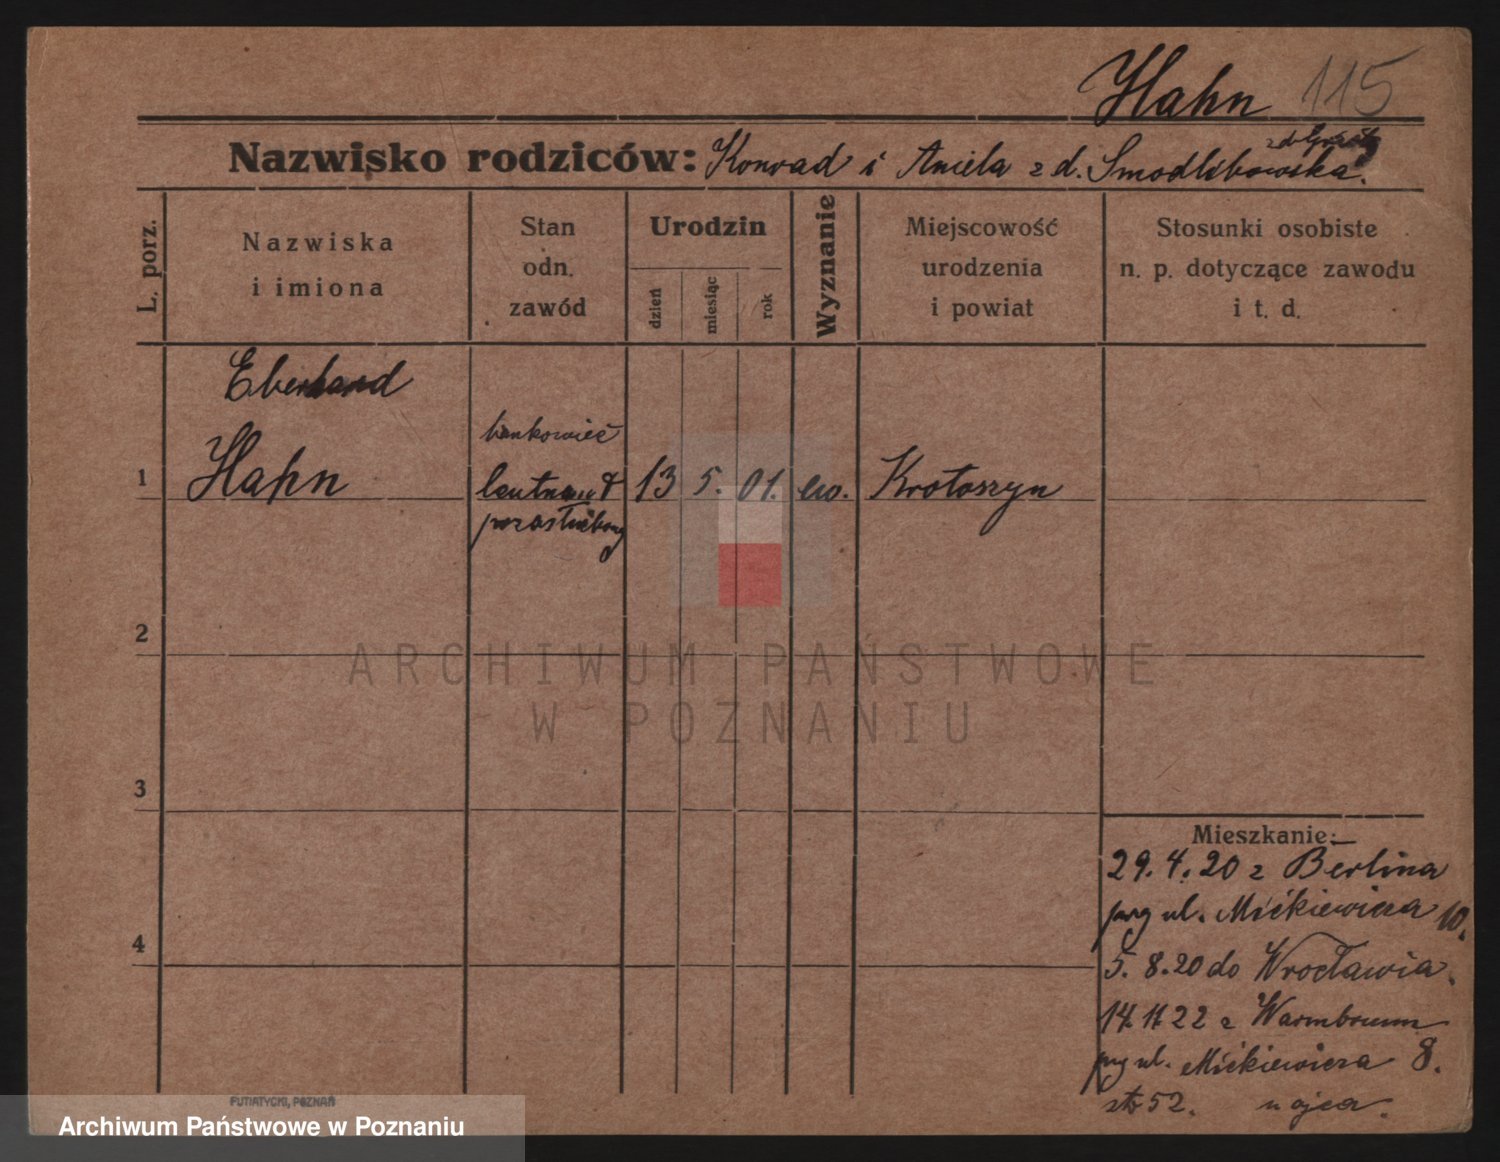 Hahn 115
Nazwisko rodziców: Konrad i Aniela z d. Smodlibowska.
L. porz.
Nazwiska
i imiona
Stan
odn.
zawód
Urodzin
dzień
miesiąc
rok
Wyznanie
Miejscowość
urodzenia
i powiat
Stosunki osobiste
n. p. dotyczące zawodu
i t. d.
Eberhard
bankowiec
1 Hahn 13 5. 01. ew. Krotoszyn
2
ARCHIWUM PAŃSTWOWE
W POZNANIU
3
Mieszkanie:
29.4.20 z Berlina
ul. Mickiewicza 10.
4
5.8.20 do Wrocławia.
14.11 22 z Warmbrunn
ul. Mickiewicza 8.
str 52. u ojca.
FUTIATYCKI, POZNAŃ
Archiwum Państwowe w Poznaniu